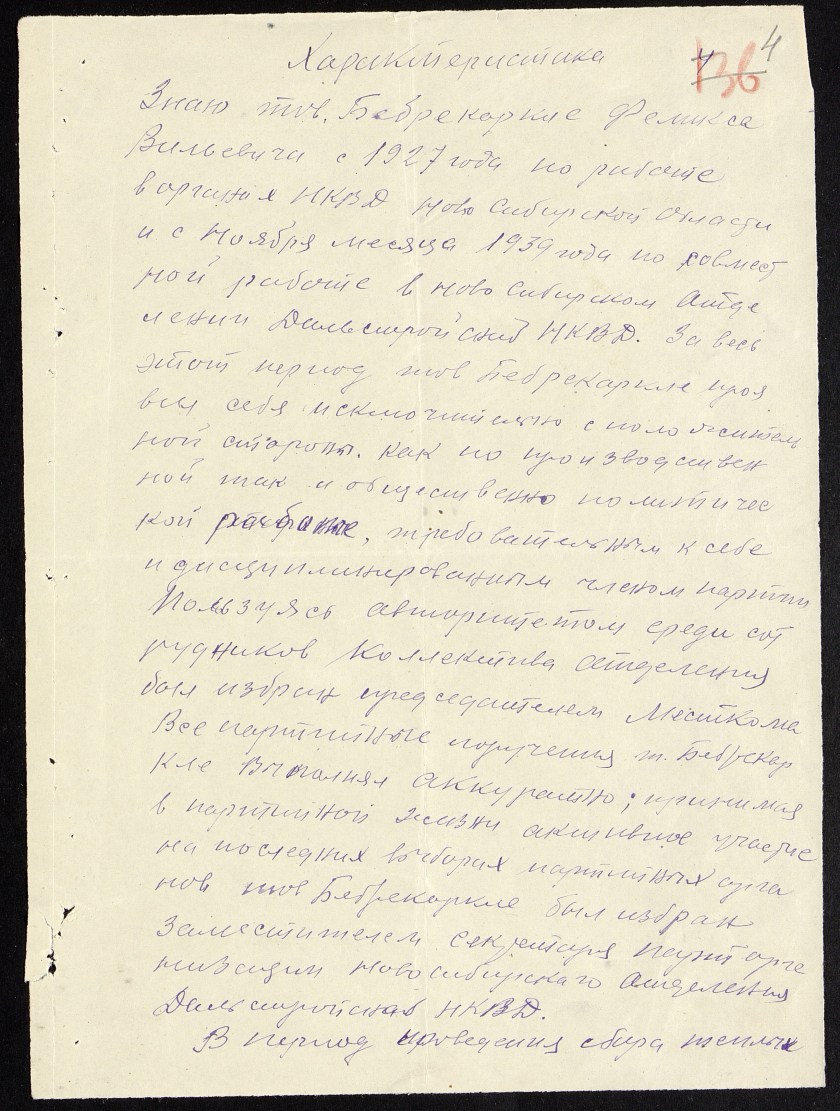 4
136
Характеристика
Знаю тов. Бебрекаркле Феликса
Вильевича с 1927 года по работе
в органах НКВД Новосибирской области
и с ноября месяца 1939 года по совмест
ной работе в Новосибирском отде
лении Дальстройснаб НКВД. За весь
этот период тов Бебрекаркле проя
вил себя исключительно с положитель
ной стороны. как по производствен
ной так и общественно политичес
кой работе, требовательным к себе
и дисциплинированным членом партии
Пользуясь авторитетом среди сот
рудников коллектива отделения
был избран председателем Месткома
Все партийные поручения т. Бебрекар
кле выполнял аккуратно; принимая
в партийной жизни активное участие
на последних выборах партийных орга
нов тов Бебрекаркле был избран
заместителем секретаря парторга
низации Новосибирскаго отделения
Дальстройснаб НКВД.
В период проведения сбора теплых